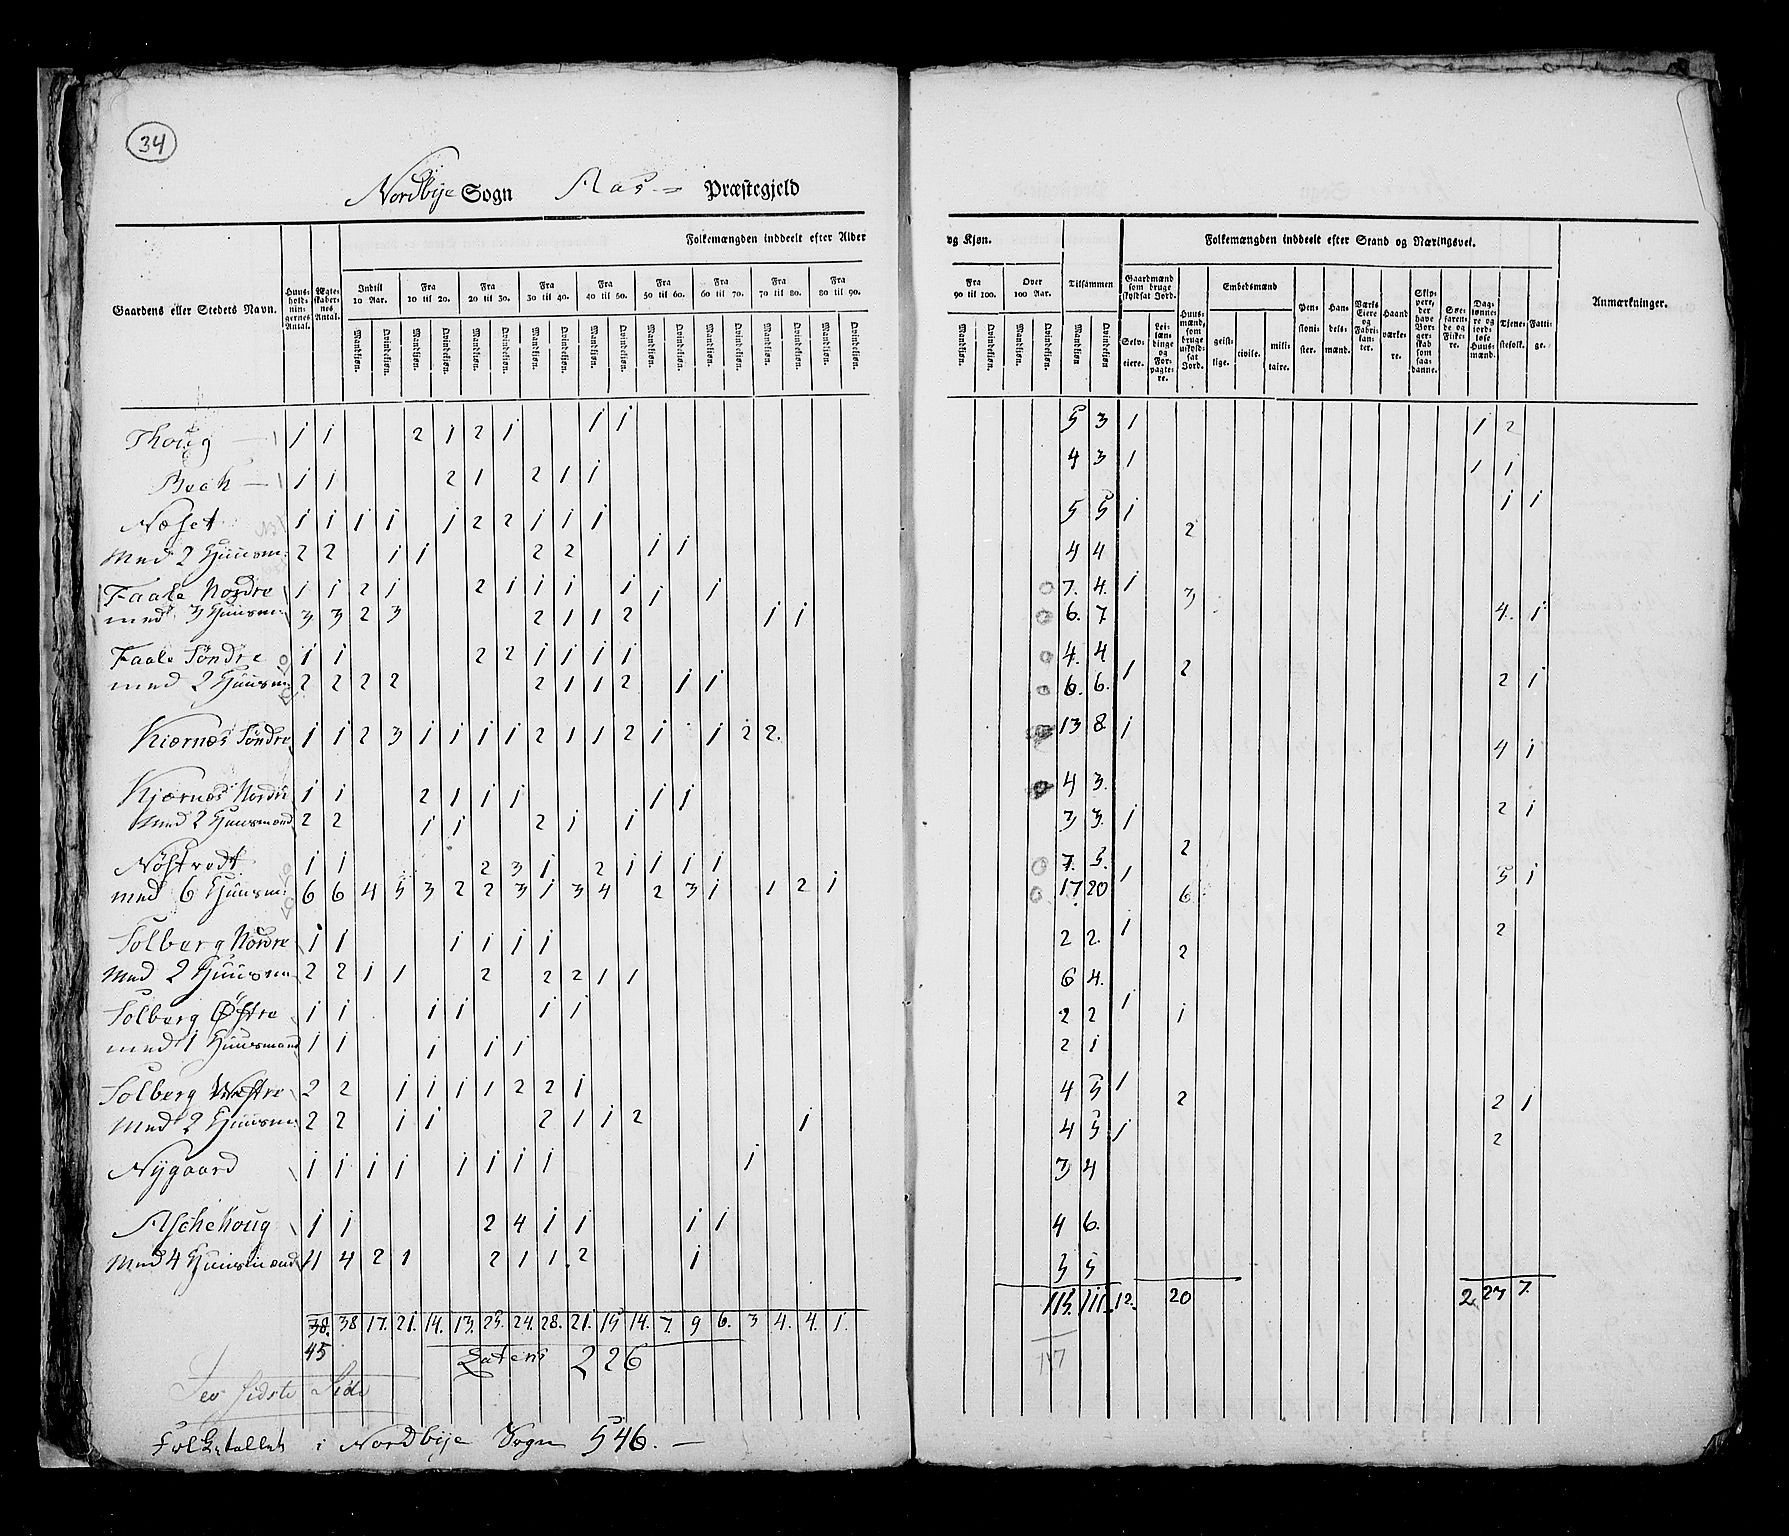 34
Nordbye Sogn Aas Præstegjeld
Folkemængden inddeelt efter Alder og Kjøn. Folkemængden inddeelt efter Stand og Næringsvei.
Gaardens eller Stedets Navn. Huusholdningernes Antal. Ægteskabernes Antal. Indtil 10 Aar. Fra 10 til 20. Fra 20 til 30. Fra 30 til 40. Fra 40 til 50. Fra 50 til 60. Fra 60 til 70. Fra 70 til 80. Fra 80 til 90. Fra 90 til 100. Over 100 Aar. Tilsammen Gaardmænd som bruge skyldsat Jord. Huusmænd, som bruge uskyldsat Jord. Embedsmænd Pensionister. Handelsmænd. Værks Eiere og Fabrikanter. Haandværkere. Skippere, der have Borgerskab som saadanne. Søefarende og Fiskere. Daglønnere og jordløse Huusmænd. Tjenestefolk. Fattige. Anmærkninger.
Mandkjøn. Qvindekjøn. Mandkjøn. Qvindekjøn. Mandkjøn. Qvindekjøn. Mandkjøn. Qvindekjøn. Mandkjøn. Qvindekjøn. Mandkjøn. Qvindekjøn. Mandkjøn. Qvindekjøn. Mandkjøn. Qvindekjøn. Mandkjøn. Qvindekjøn. Mandkjøn. Qvindekjøn. Mandkjøn. Qvindekjøn. Mandkjøn Qvindekjøn. Selveiere. Leilændinge og Forpagtere. geistlige. civile. militaire.
Thoug 1 1 1 2 1 2 1 1 1 5 3 1 1 2
Bech 1 1 1 2 1 2 1 1 4 3 1 1 1
Næset 1 1 1 1 1 2 2 1 1 1 5 5 1 1 1
Med 2 Huusm: 2 2 1 1 2 2 1 1 4 4 2
Faale Nordre 1 1 2 1 2 1 1 1 1 1 1 7. 4. 1
med 3 Huusm 3 3 2 3 2 1 1 2 1 1 6. 7 3 4. 1
Faale Søndre 1 1 2 2 1 1 1 1 4. 4
med 2 Huusm 2 2 2 2 2 1 1 2 1 1 6. 6. 1 2 2 1
Kiærnæs Søndre 1 1 2 3 1 1 1 1 2 1 1 2 1 1 2 2. 13 8. 1 4 1
Kjærnæs Nordre 1 1 2 1 1 1 1 1 4 3.
Med 2 Huusmænd 2 2 1 1 2 1 1 3 3. 1 2 2 1
Nøstvedt. 1 1 2 3 1 2 1 1 1 1 7. 5.
med 6 Huusm: 6 6 4 5 3 2 2 3 1 3 4 2 3 1 1 2 1 17 20 1 6 5 1
Solberg Nordre 1 1 1 1 1 1 2 2. 1 2
Med 2 Huusm 2 2 1 1 2 2 2 1 1 6 4. 2
Solberg Østre 1 1 1 1 1 1 2 2 1 1
med 1 Huusmand 1 1 1 1 1 2 1
Solberg Westre 2 2 1 1 1 1 2 2 1 4 5 1 2 2 1
Med 2 Huusm 2 2 1 1 2 1 1 2 1 4 5 1 2
Nygaard 1 1 1 1 1 1 1 1 1 3 4
Aschehoug 1 1 2 4 1 1 1 1 4 6.
Med 4 Huusmænd 4 4 2 1 2 1 1 2 1 5 5
38. 38 17. 21. 14. 13. 25. 24. 28. 21. 15 14. 7. 9 6. 3 4. 4. 1. 115. 111. 12. 20 2 27 7.
45 Latens 226 117
See sidste Side
Folketallet i Nordbye Sogn 546.